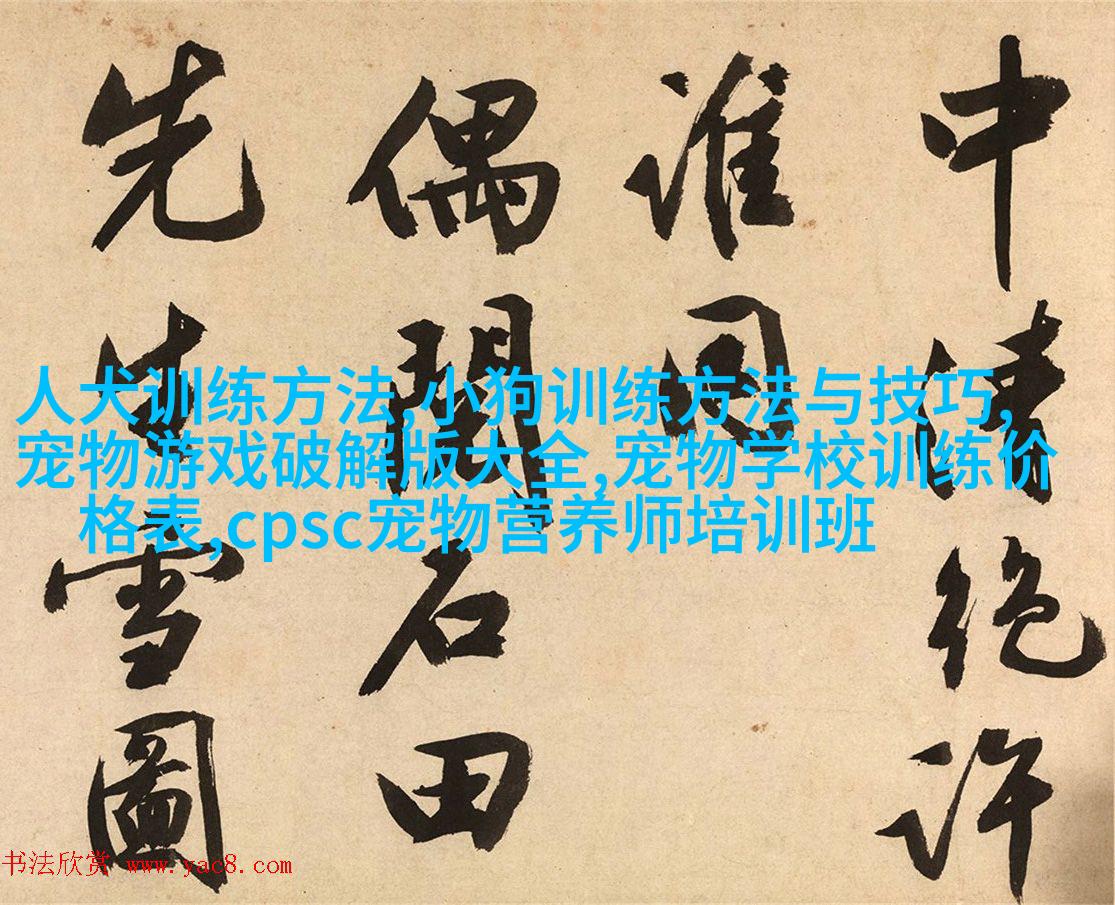 中清絕許
誰同
偶閱石田
先生雪圖
人犬训练方法,小狗训练方法与技巧,
宠物游戏破解版大全,宠物学校训练价
格表,cpsc宠物营养师培训班
书法欣赏 www.yac8.com